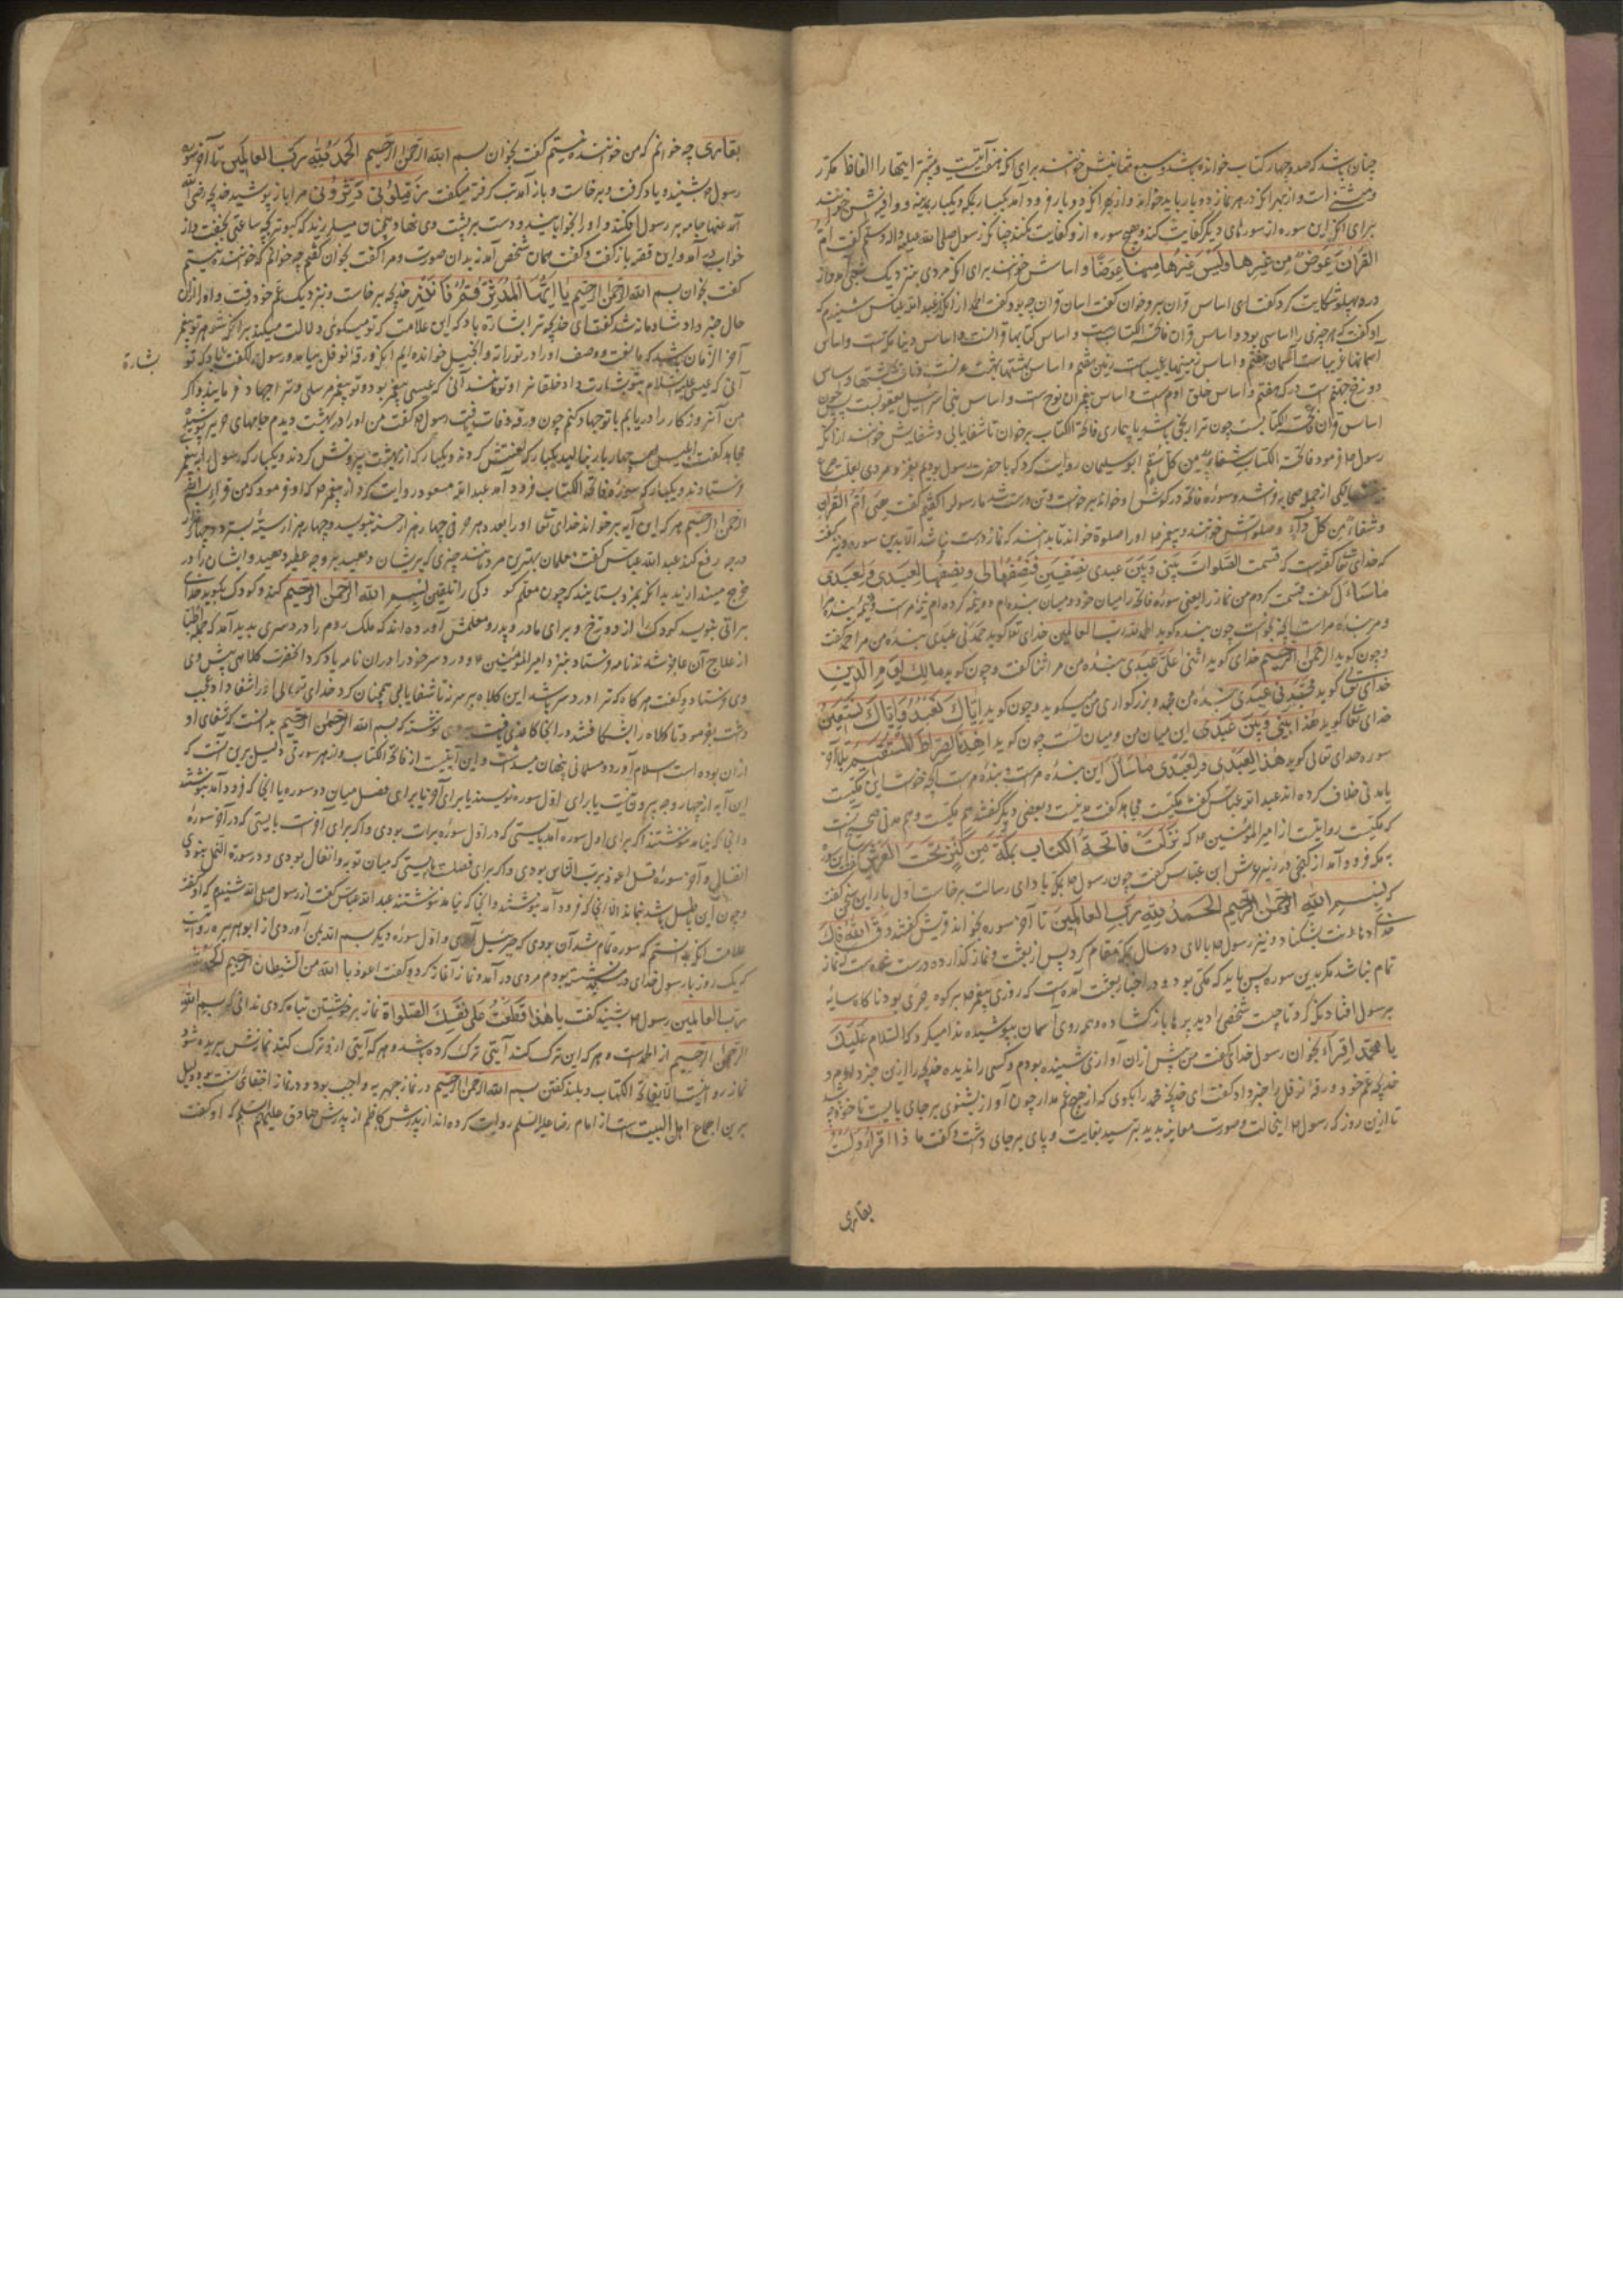 چنان باشد که صد و چهار کتاب خوانده باشد و سبع مثانیش خوانند برای آنکه هفت آیتست و بیشتر اینها را الفاظ مکرر
و مثنی است و از بهر آنکه در هر نماز دو بار باید خواند و از بهر آنکه دو بار فرود آمد یکبار بمکه و یکبار بمدینه و وافیش خوانند
برای آنکه این سوره از سورهای دیگر کفایت کند و هیچ سوره از و کفایت نکند چنانکه رسول صلی الله علیه و اله و سلم گفت ام
القرآن عوض من غیرها و لیس غیرها منها عوضا و اساسش خوانند برای آنکه مردی بنزدیک شعبی آمد و از
درد پهلو شکایت کرد گفت ای اساس قرآن برو خوان گفت اساس قرآن چه بود گفت الحمد از آنکه از عبد الله عباس شنیدم که
او گفت که هر چیزی را اساسی بود و اساس قرآن فاتحة الکتابست و اساس کتابها قرآنست و اساس دنیا مکه است و اساس
آسمانها غریباست آسمان هفتم و اساس زمینها عجیباست زمین هفتم و اساس بهشتها بهشت عدنست
دوزخ جهنم است درکه هفتم و اساس خلق آدم است و اساس پیغمبران نوح است و اساس بنی اسرائیل یعقوبست پس چون
اساس قرآن فاتحة الکتابست چون ترا رنجی باشد یا بیماری فاتحة الکتاب برخوان تا شفا یابی و شفایش خوانند از آنکه
رسول فرمود فاتحة الکتاب شفاء من کل سقم ابو سلیمان روایت کرد که با حضرت رسول بودیم بغزو مردی بعلت صرع
یکی از جمله صحابه فرو شد و سوره فاتحه در گوش او خواند برخواست و تن درست شد ما رسول را گفتیم گفت هی ام القرآن
و شفاء من کل داء و صلوتش خوانند و پیغمبر اورا صلوة خواند تا بدانند که نماز درست نباشد الا بدین سوره و نیز گفت
که خدای تعالی گفته است که قسمت الصلوات بینی و بین عبدی نصفین فنصفها لی و نصفها لعبدی و لعبدی
ما سأل گفت قسمت کردم من نماز را یعنی سوره فاتحه را میان خود و میان بنده ام دو نیمه کرده ام نیمه مراست و نیمه بنده مرا
و مر بنده مراست آنچه بخواست چون بنده گوید الحمد لله رب العالمین خدای تعالی گوید حمدنی عبدی بنده من مرا حمد گفت
و چون گوید الرحمن الرحیم خدای گوید اثنی علی عبدی بنده من مرا ثنا گفت و چون گوید مالک یوم الدین
خدای تعالی گوید مجدنی عبدی بنده من مجد و بزرگواری من میگوید و چون گوید ایاک نعبد و ایاک نستعین
خدای تعالی گوید هذا بینی و بین عبدی این میان من و میان بنده منست چون گوید اهدنا الصراط المستقیم تا آخر
سوره خدای تعالی گوید هذا لعبدی و لعبدی ما سأل این بنده مراست و بنده مراست آنچه خواست این مکیست
یا مدنی خلاف کرده اند عبد الله عباس گفت مکیست مجاهد گفت مدنیست و بعضی دیگر گفتند هم مکیست و هم مدنی صحیح آنست
که مکیست روایتست از امیر المؤمنین که نزلت فاتحة الکتاب بمکة من کنز تحت العرش
بمکه فرود آمد از گنجی در زیر عرش ابن عباس گفت چون رسول بمکه بادای رسالت برخاست اول بار این سخن گفت
که بسم الله الرحمن الرحیم الحمد لله رب العالمین تا آخر سوره بخواند قریش گفتند دق الله فاک
خدای دهانت بشکناد و نیز رسول بالای ده سال بمکه مقام کرد پس از بعثت و نماز گذارد و درست شده است که نماز
تمام نباشد مگر بدین سوره پس باید که مکی بود و در اخبار بعثت آمده است که روزی پیغمبر بر کوه حری بود ناگاه سایه
بر رسول افتاد نگه کرد تا چیست شخصی را دید پرها باز گشاده و همه روی آسمان بپوشیده ندا میکرد که السلام علیک
یا محمد اقراء بخوان رسول خدا گفت من پیش از آن آوازی شنیده بودم و کسی را ندیده خدیجه را ازین خبر دادم و
خدیجه عم خود ورقة نوفل را خبر داد گفت ای خدیجه محمد را بگوی که از هیچ غم مدار چون آواز بشنوی بر جای بایست تا خود چه
تا ازین روز که رسول این حالت و صورت معاینه بدید بترسید بغایت و پای بر جای داشت و گفت ما ذا اقراء و لست
بقاری
بقاری چه خوانم که من خواننده نیستم گفت بخوان بسم الله الرحمن الرحیم الحمد لله رب العالمین تا آخر سوره
رسول بشنید و یاد گرفت و برخاست و باز آمد تب گرفته میگفت زملونی دثرونی مرا باز پوشید خدیجه رضی الله
عنها جامه بر رسول افکند و او را بخوابانید و دست بر پشت وی نهاد و همچنان میلرزید که کبوتر بچه ساعتی بخفت و از
خواب در آمد و این قصه باز گفت و گفت همان شخص آمد بدان صورت و مرا گفت بخوان گفتم چه خوانم که خواننده نیستم
گفت بخوان بسم الله الرحمن الرحیم یا ایها المدثر قم فانذر خدیجه برخاست و بنزدیک عم خود رفت و او را ازان
حال خبر داد شادمانه شد گفت ای خدیجه ترا بشارة باد که این علامت که تو میگوئی دلالت میکند بر آنکه شوهر تو پیغمبر
آخر الزمان باشد که ما نعت و وصف او را در توراة و انجیل خوانده ایم آنگه ورقة نوفل بیامد و رسول را گفت
بشارة
آنی که عیسی علیه السلام بتو بشارت داد خلقانرا و تو مانند آنی که عیسی پیغمبر بود و تو پیغمبر مرسلی و ترا جهاد فرمایند و اگر
من آنروزگار را دریابم با تو جهاد کنم چون ورقه وفات یافت رسول گفت من او را در بهشت دیدم جامهای حریر پوشیده
مجاهد گفت ابلیس لعین چهار بار بنالید یکبار که لعنتش کردند و یکبار که از بهشت بیرونش کردند و یکبار که رسول را به پیغمبر
فرستادند و یکبار که سوره فاتحة الکتاب فرود آمد عبد الله مسعود روایت کرد از پیغمبر که او فرمود که من قراء بسم الله
الرحمن الرحیم هر که این آیه برخواند خدای تعالی او را بعدد هر حرفی چهار هزار حسنه بنویسد و چهار هزار سیئه بسترد و چهار هزار
درجه رفع کند عبد الله عباس گفت معلمان بهترین مردمانند چیزی که بریشان دهید بر وجه عطیه دهید و ایشان را در
حرج میندازید بدانکه بمزد بستانند که چون معلم کودکی را تلقین بسم الله الرحمن الرحیم کند و کودک بگوید خدای
براتی بنویسد کودک را از دوزخ و برای مادر و پدر و معلمش آورده اند که ملک روم را درد سری پدید آمد که جمله اطبا
از علاج آن عاجز شدند نامه فرستاد بنزد امیر المؤمنین و درد سر خود را در ان نامه یاد کرد آنحضرت کلاهی پیش وی
وی فرستاد و گفت هر گاه که ترا درد سر باشد این کلاه بر سر نه تا شفا یابی همچنان کرد خدای تعالی او را شفا داد عجب
داشت بفرمود تا کلاه را بشکافتند در انجا کاغذی یافت بر وی نوشته که بسم الله الرحمن الرحیم بدانست که شفای او
ازان بوده است اسلام آورد و مسلمانی پنهان میداشت و این آیتیست از فاتحة الکتاب و از هر سورتی دلیل برین آنست که
این آیه از چهار وجه بیرون نیست یا برای اول سوره نویسند یا برای آخر یا برای فصل میان دو سوره یا آنجا که فرود آمد بنوشتند
و آنجا که نیامد ننوشتند اگر برای اول سوره آمد بایستی که در اول سوره برات بودی و اگر برای آخرست بایستی که در آخر سوره
انفال و آخر سوره قل اعوذ برب الناس بودی و اگر برای فصلست بایستی که میان توبه و انفال بودی و در سورة النمل نبودی
و چون این باطل باشد بماند الا آنکه فرود آمد بنوشتند و آنجا که نیامد ننوشتند عبد الله عباس گفت از رسول صلی الله شنیدم که او گفت
علامت آنکه بدانستم که سوره تمام شد آن بودی که جبرئیل آمدی و اول سوره دیگر بسم الله بمن آوردی از ابو هریره روایت
که یک روز با رسول خدای در مسجد نشسته بودم مردی در آمد و نماز آغاز کرد و گفت اعوذ بالله من الشیطان الرجیم الحمد لله
رب العالمین رسول بشنید گفت یا هذا قطعت علی نفسک الصلواة نماز بر خویشتن تباه کردی ندانی که بسم الله
الرحمن الرحیم از الحمدست و هر که این ترک کند آیتی ترک کرده باشد و هر که آیتی ازو ترک کند نمازش بریده شود
نماز روا نیست الا بفاتحة الکتاب و بلند گفتن بسم الله الرحمن الرحیم در نماز جهریه واجب بود و در نماز اخفائی سنت بود دلیل
برین اجماع اهل البیت است از امام رضا علیه السلم روایت کرده اند از پدرش کاظم از پدرش صادق علیهم السلم که او گفت